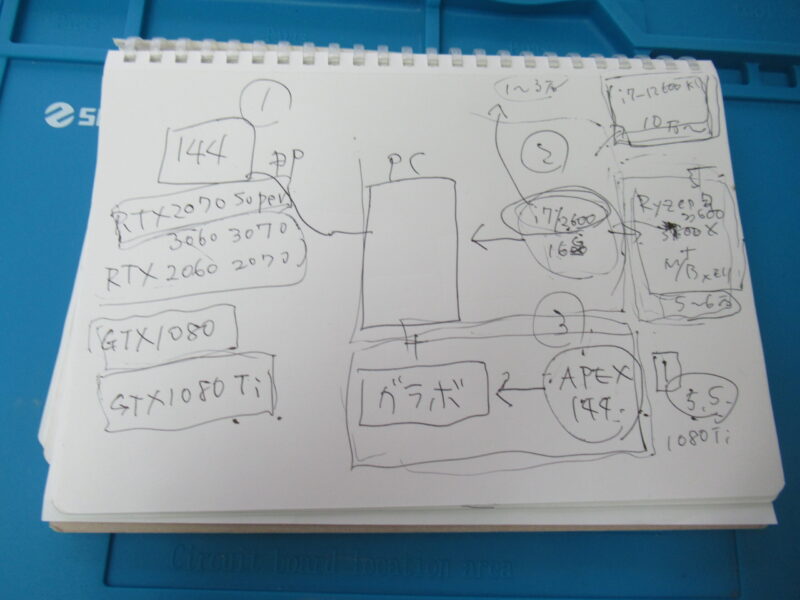 ①
144
DP
RTX2070 Super
3060 3070
RTX 2060 2070
GTX1080
GTX1080 Ti
PC
グラボ
1~3万
②
i7/2600
③
APEX
144
i7-12600K
10万~
Ryzen
3600
+
M/B
5~6万
5.5
1080Ti
Circuit board location area